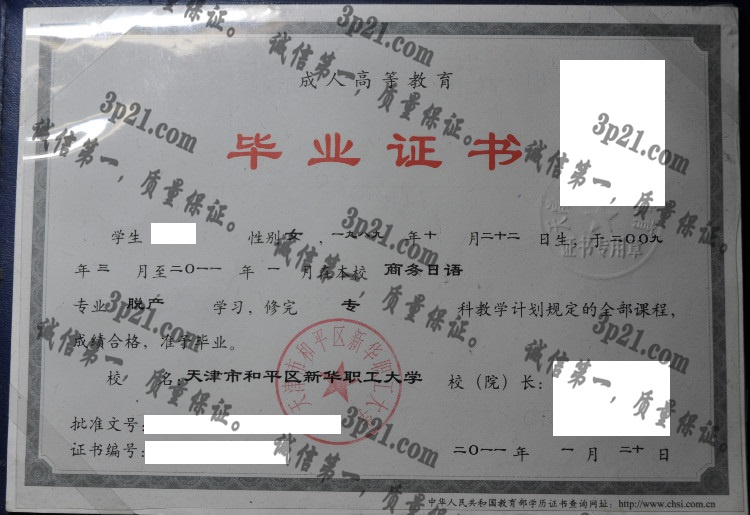 成人高等教育
毕业证书
学生 性别 女 ，一九八九 年 十 月 二十二 日生，于 二〇〇九
年 三 月至 二〇一一 年 一 月在本校 商务日语
专业 脱产 学习，修完 专 科教学计划规定的全部课程，
成绩合格，准予毕业。
校 名：天津市和平区新华职工大学 校（院）长：
批准文号：
证书编号： 二〇一一 年 一 月 二十 日
中华人民共和国教育部学历证书查询网址：http://www.chsi.com.cn
天津市和平区新华职工大学
证书专用章
3p21.com
诚信第一，质量保证。
3p21.com
诚信第一，质量保证。
3p21.com
诚信第一，质量保证。
3p21.com
诚信第一，质量保证。
3p21.com
诚信第一，质量保证。
3p21.com
诚信第一，质量保证。
3p21.com
诚信第一，质量保证。
3p21.com
诚信第一，质量保证。